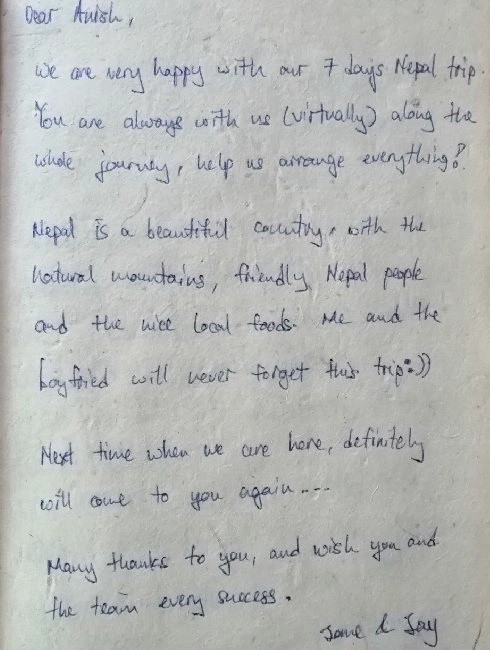 Dear Anish,
We are very happy with our 7 days Nepal trip.
You are always with us (virtually) along the
whole journey, help us arrange everything!
Nepal is a beautiful country, with the
natural mountains, friendly Nepal people
and the nice local foods. Me and the
boyfried will never forget this trip :))
Next time when we are here, definitely
will come to you again....
Many thanks to you, and wish you and
the team every success.
& Jay